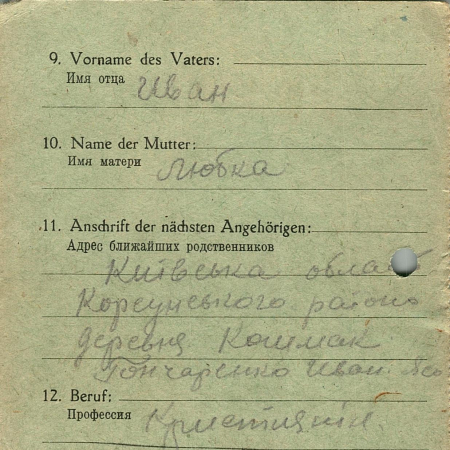 9. Vorname des Vaters:
Имя отца Иван
10. Name der Mutter:
Имя матери Любка
11. Anschrift der nächsten Angehörigen:
Адрес ближайших родственников
Київська област
Корсунського району
деревня Кошмак
Гончаренко Иван
12. Beruf:
Профессия